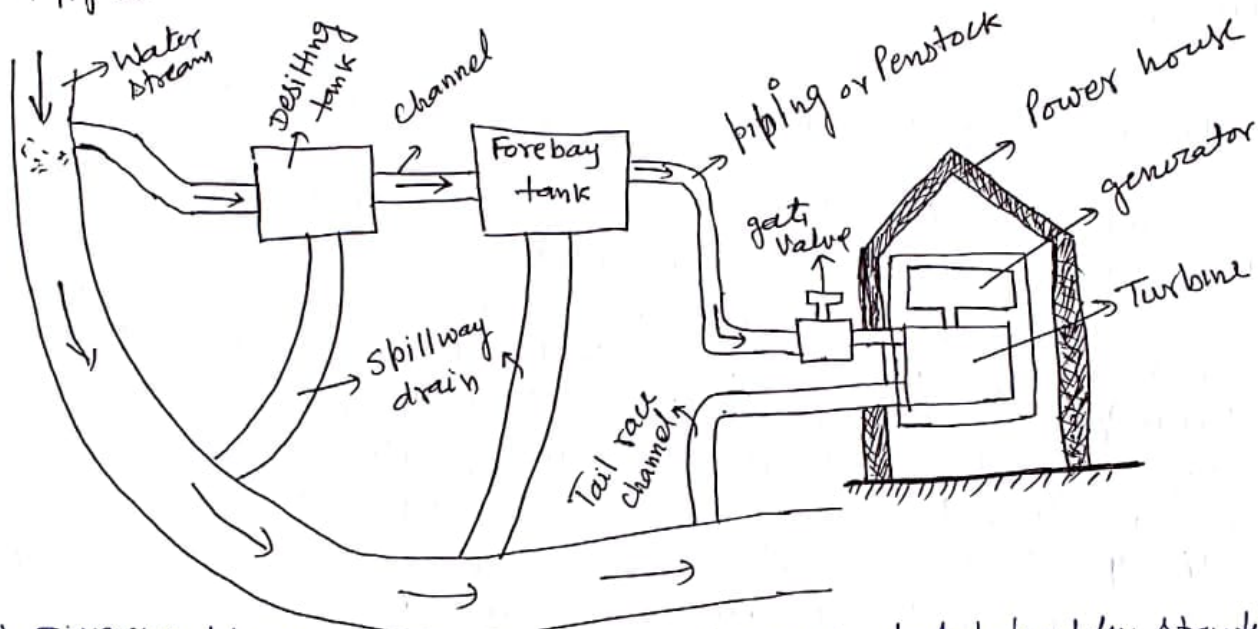 Water
stream
Desilting
tank
channel
Forebay
tank
piping or Penstock
Power house
generator
Turbine
gate
valve
Spillway
drain
Tail race
channel